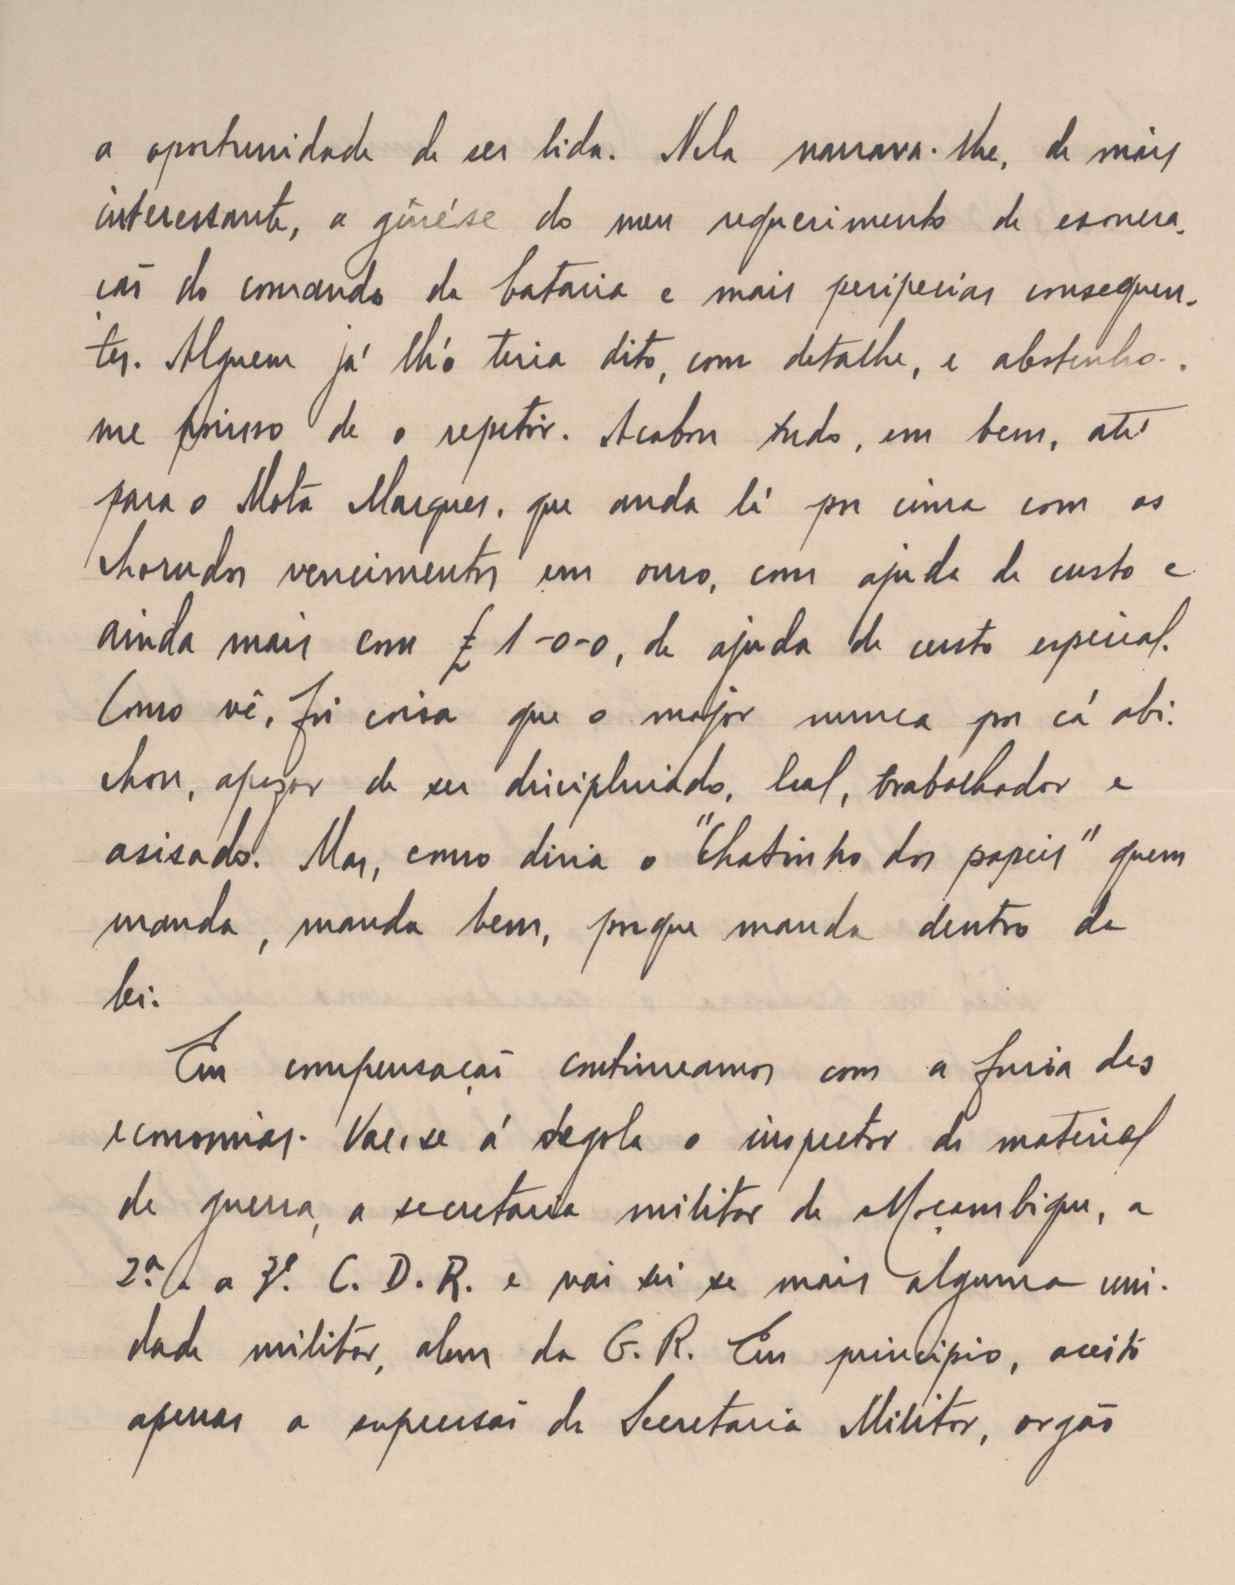 a oportunidade de ser lida. Nela narrava-lhe, de mais
interessante, a génése do meu requerimento de exonera-
ção do comando da bataria e mais peripecias consequen-
tes. Alguem já lh'o teria dito, com detalhe, e abstenho-
me por isso de o repetir. Acabou tudo, em bem, até
para o Mota Marques, que anda lá por cima com os
chorudos vencimentos em ouro, com ajuda de custo e
ainda mais com £ 1-0-0, de ajuda de custo especial.
Como vê, foi coisa que o major nunca por cá abi-
chou, apezar de ser disciplinado, leal, trabalhador e
asisado. Mas, como diria o "Chatinho dos papeis" quem
manda, manda bem, porque manda dentro da
lei.
Em compensação continuamos com a furia das
economias. Vae-se á degola o inspector do material
de guerra, a secretaria militar de Moçambique, a
2ª. e a 3ª. C. D. R. e não sei se mais alguma uni-
dade militar, alem da G. R. Em principio, aceito
apenas a supressão da Secretaria Militar, orgão